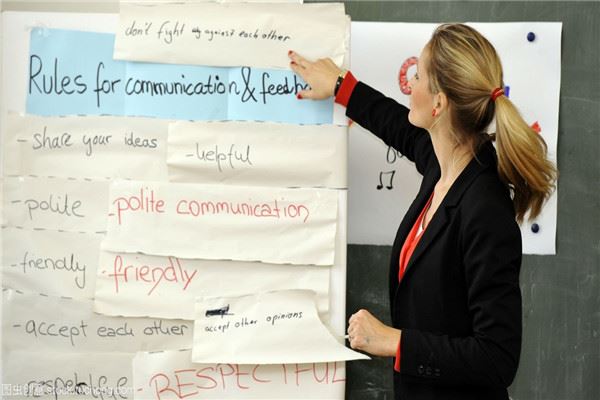 don't fight against each other
Rules for communication & feedb
- share your ideas
- helpful
- polite
- polite communication
- friendly
- friendly
- accept each other
accept other opinions
- RESPECTFUL